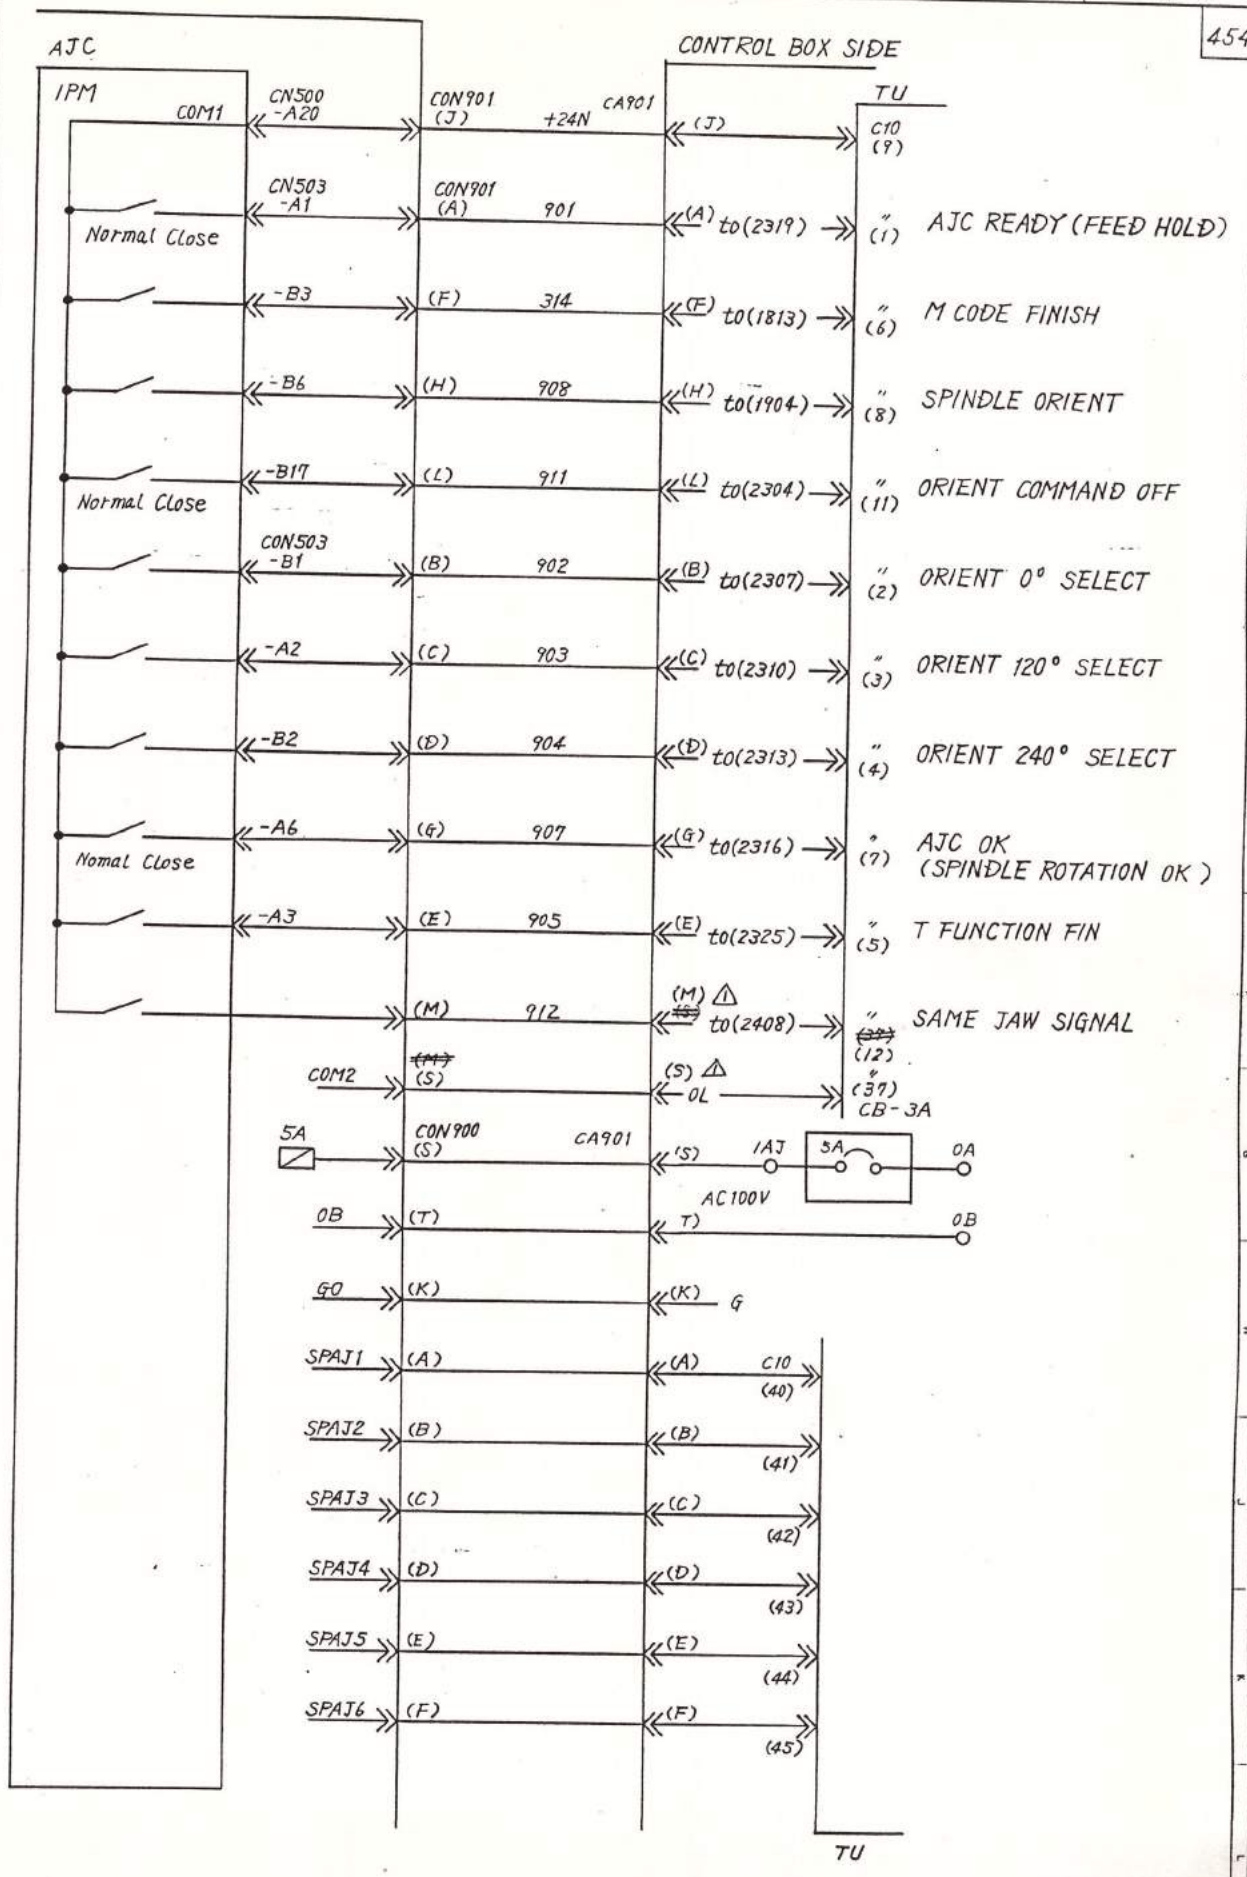 454
AJC
CONTROL BOX SIDE
IPM
TU
COM1 CN500 -A20 CON901 (J) +24N CA901 (J) C10 (9)
CN503 -A1 CON901 (A) 901 (A) to(2319) " (1) AJC READY (FEED HOLD)
Normal Close
-B3 (F) 314 (F) to(1813) " (6) M CODE FINISH
-B6 (H) 908 (H) to(1904) " (8) SPINDLE ORIENT
-B17 (L) 911 (L) to(2304) " (11) ORIENT COMMAND OFF
Normal Close
CON503 -B1 (B) 902 (B) to(2307) " (2) ORIENT 0° SELECT
-A2 (C) 903 (C) to(2310) " (3) ORIENT 120° SELECT
-B2 (D) 904 (D) to(2313) " (4) ORIENT 240° SELECT
-A6 (G) 907 (G) to(2316) " (7) AJC OK
Nomal Close
(SPINDLE ROTATION OK)
-A3 (E) 905 (E) to(2325) " (5) T FUNCTION FIN
(M) 912 (M) 1 (S) to(2408) " (37) (12) SAME JAW SIGNAL
COM2 (M) (S) (S) 1 OL " (37)
CB-3A
5A CON900 (S) CA901 (S) 1AJ 5A 0A
AC100V
0B (T) T) 0B
G0 (K) (K) G
SPAJ1 (A) (A) C10 (40)
SPAJ2 (B) (B) (41)
SPAJ3 (C) (C) (42)
SPAJ4 (D) (D) (43)
SPAJ5 (E) (E) (44)
SPAJ6 (F) (F) (45)
TU
J
K
L